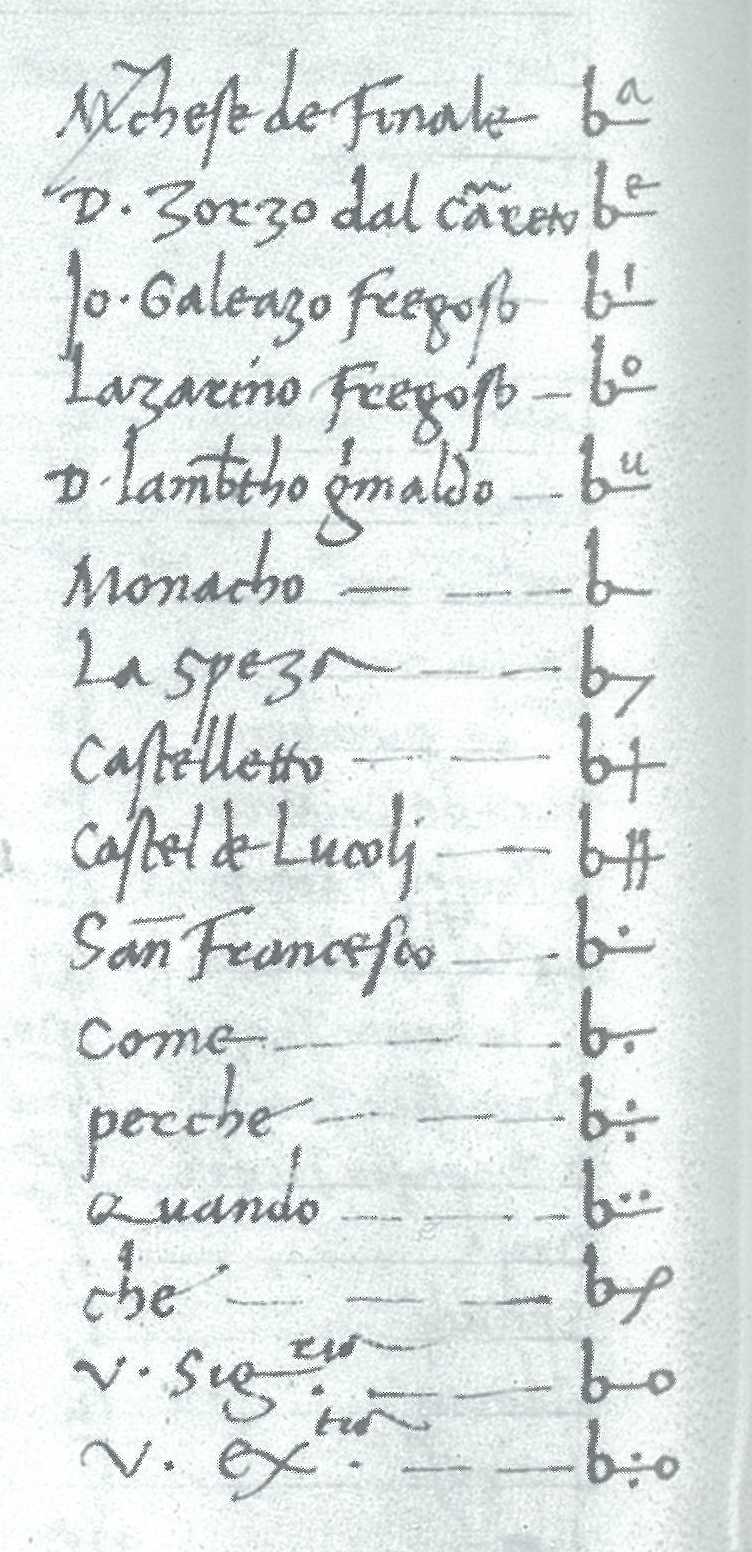 Mchese de Finale b a
D. Zorzo dal Cãreto b e
Jo. Galeazo Fregoso b i
Lazarino Fregoso b o
D. lambtho gmaldo b u
Monacho b
La speza b
Castelletto b
Castel de Lucolj b
San Francesco b
Come b
perche b
Quando b
che b
V. Sig. ria b
V. ex. tia b